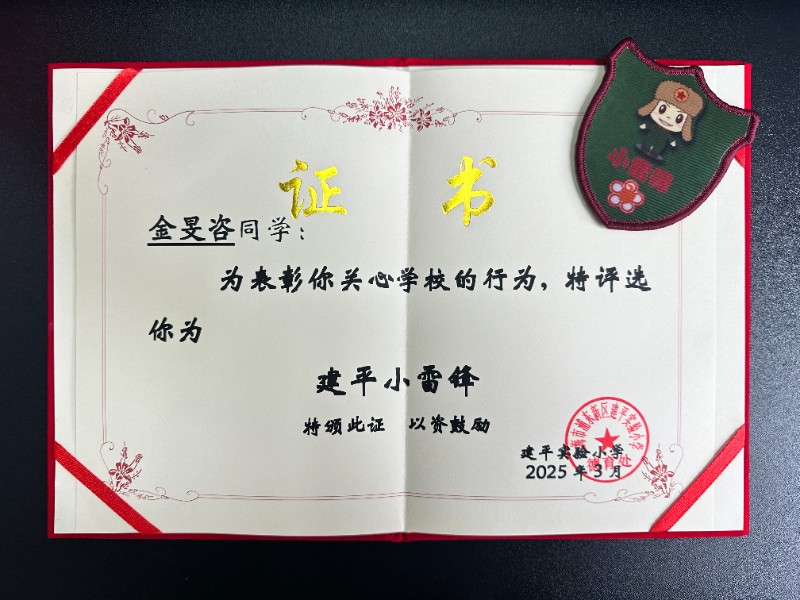 证 书
金旻咨同学：
为表彰你关心学校的行为，特评选
你为
建平小雷锋
特颁此证 以资鼓励
建平实验小学
2025 年 3 月
上海市浦东新区建平实验小学
德育处
小雷锋